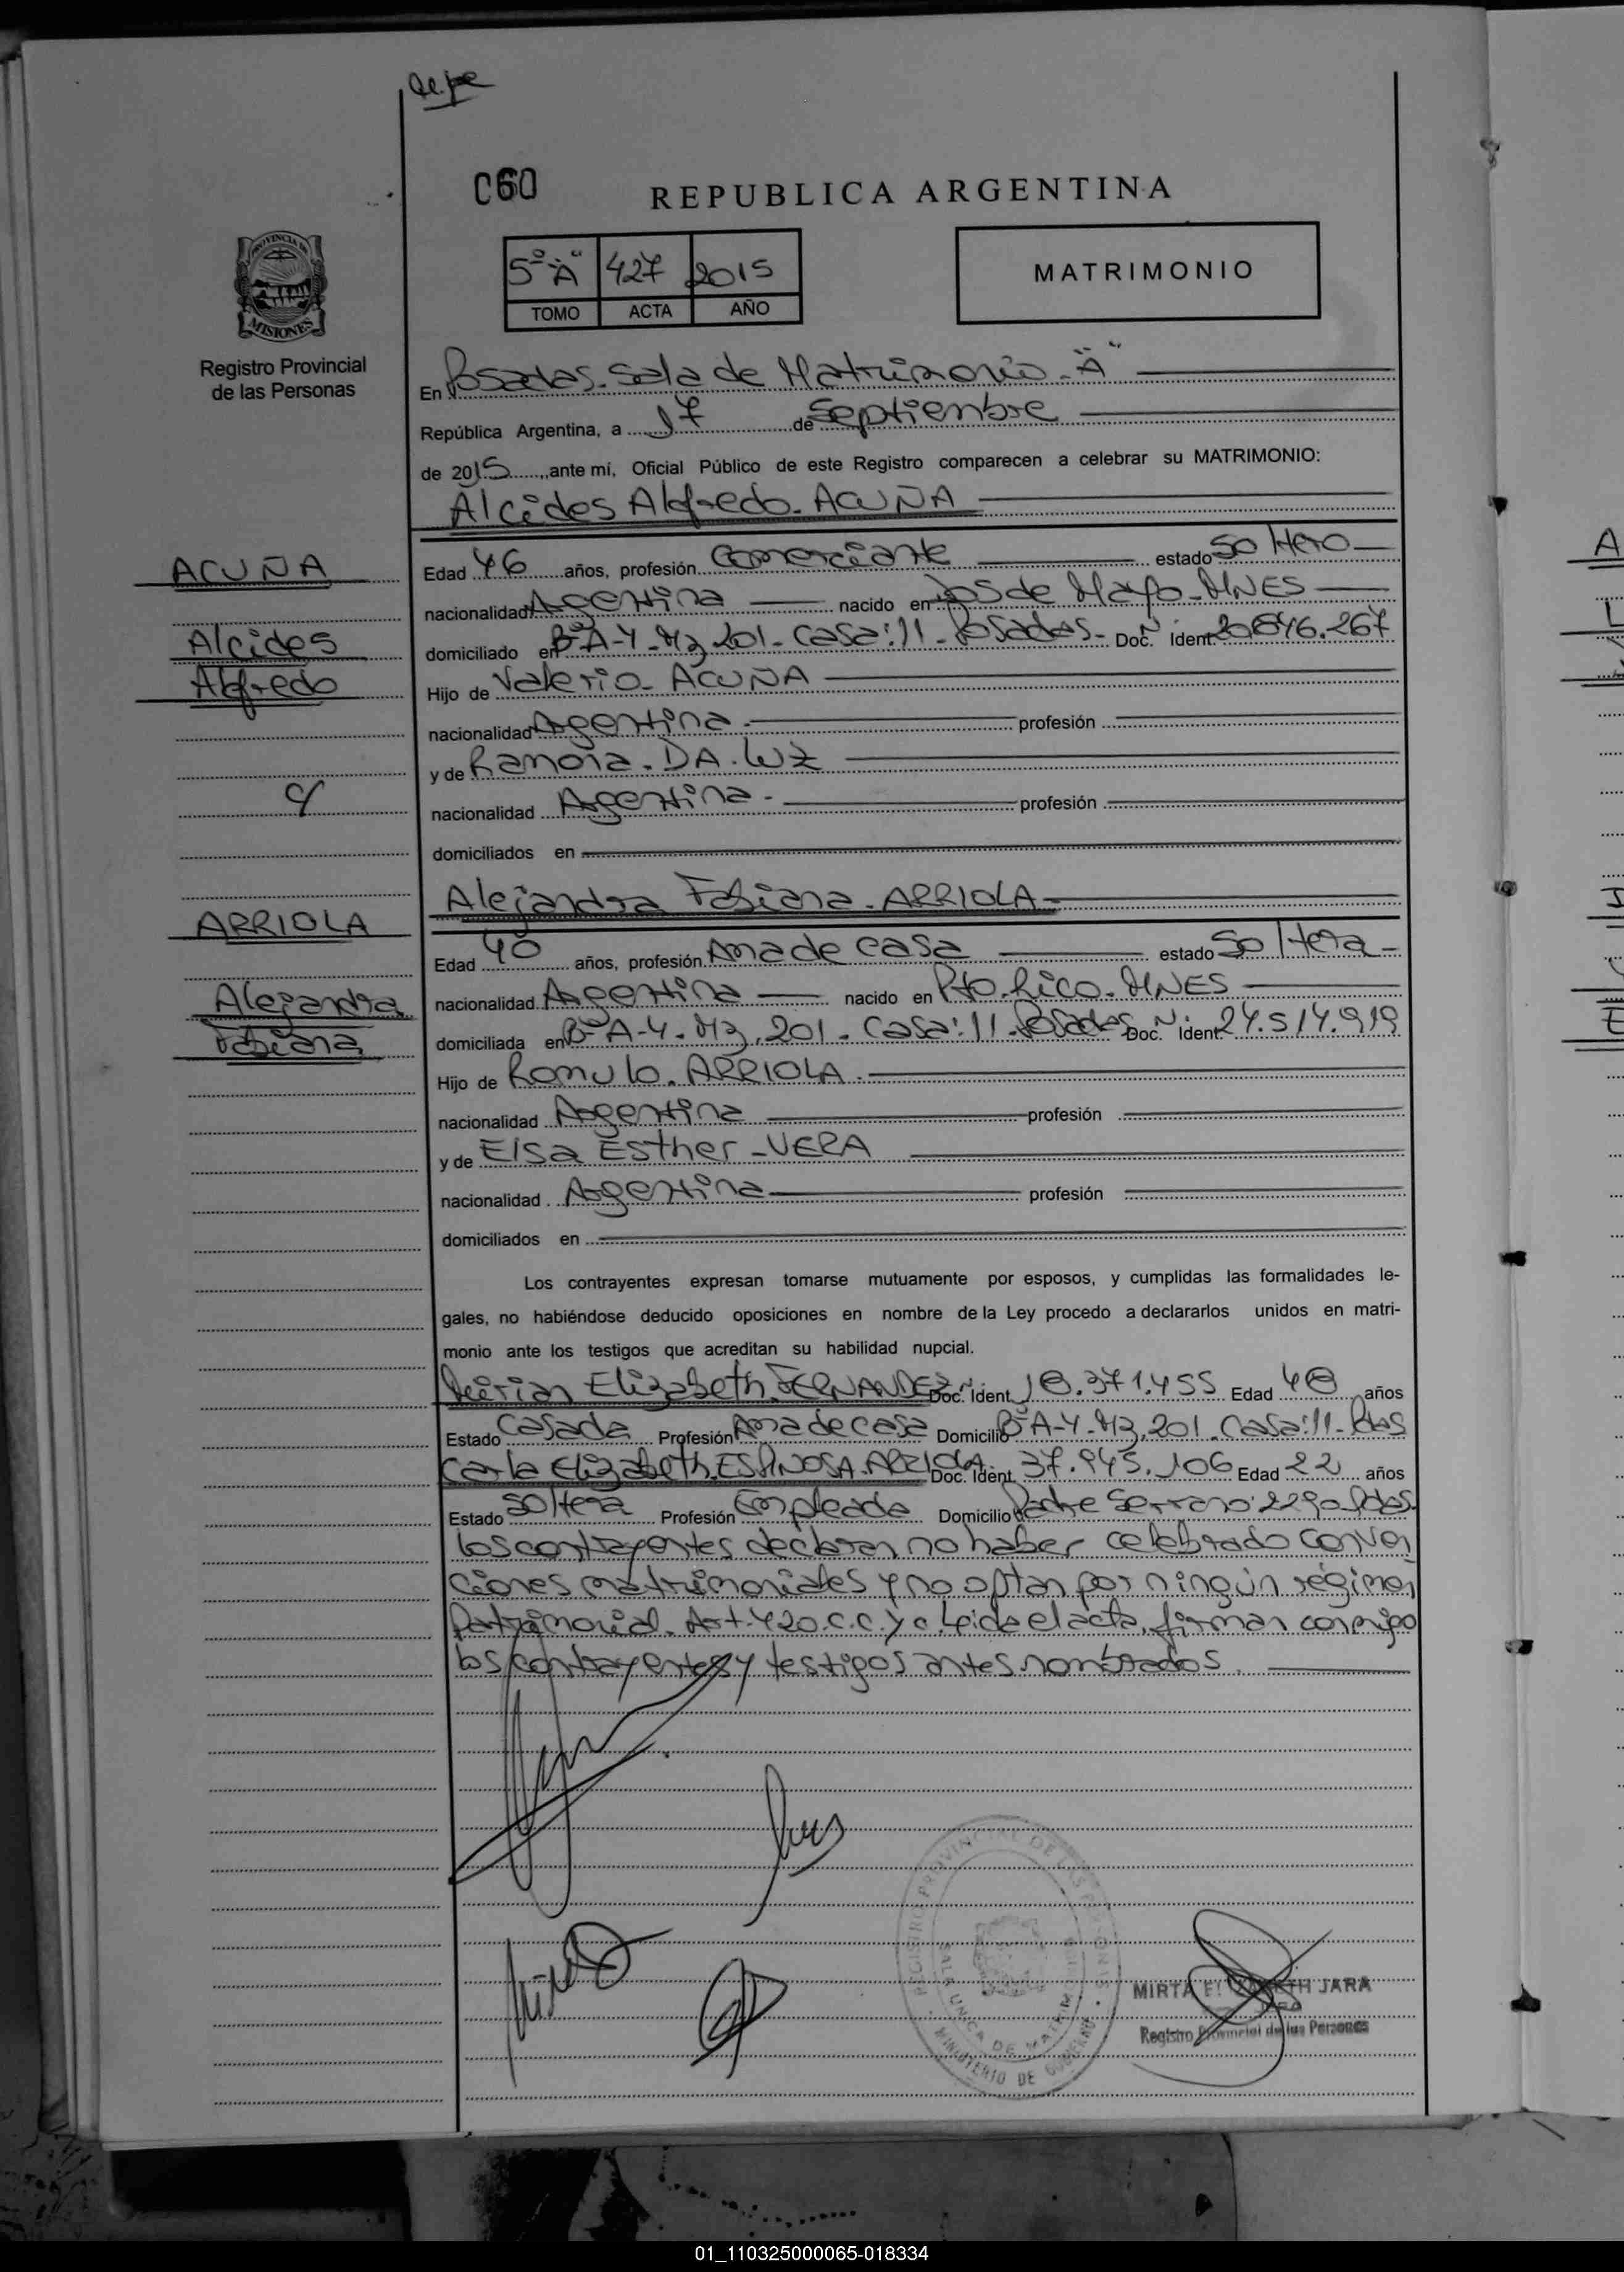 C60
REPUBLICA ARGENTINA
5º "A" 427 2015
TOMO ACTA AÑO
MATRIMONIO
PROVINCIA DE
MISIONES
Registro Provincial
de las Personas
En Posadas. Sala de Matrimonio. "A"
República Argentina, a 17 de Septiembre
de 2015, ante mí, Oficial Público de este Registro comparecen a celebrar su MATRIMONIO:
Alcides Alfredo. ACUÑA
ACUÑA
Alcides
Alfredo
Edad 46 años, profesión Comerciante estado Soltero
nacionalidad Argentina nacido en Dos de Mayo. MNES
domiciliado en Bº A-4. Mz. 201. Casa: 11. Posadas. Doc. Nº Ident. 20.846.267
Hijo de Valerio. ACUÑA
nacionalidad Argentina. profesión
y de Ramona. DA. LUZ
c/
nacionalidad Argentina. profesión
domiciliados en
Alejandra Fabiana. ARRIOLA
ARRIOLA
Alejandra
Fabiana
Edad 40 años, profesión Ama de casa estado Soltera
nacionalidad Argentina nacido en Pto. Rico. MNES
domiciliada en Bº A-4. Mz. 201. Casa: 11. Posadas. Doc. Nº Ident. 24.514.919
Hijo de Romulo. ARRIOLA.
nacionalidad Argentina profesión
y de Elsa Esther. VERA
nacionalidad Argentina profesión
domiciliados en
Los contrayentes expresan tomarse mutuamente por esposos, y cumplidas las formalidades le-
gales, no habiéndose deducido oposiciones en nombre de la Ley procedo a declararlos unidos en matri-
monio ante los testigos que acreditan su habilidad nupcial.
Mirian Elizabeth. FERNANDEZ Doc. Nº Ident. 18.371.455 Edad 48 años
Estado Casada Profesión Ama de casa Domicilio Bº A-4. Mz. 201. Casa: 11. Pdas
Carla Elizabeth. ESPINOSA. ARRIOLA. Doc. Ident. 37.945.106 Edad 22 años
Estado Soltera Profesión Empleada Domicilio Padre Serrano: 2290. Pdas.
los contrayentes declaran no haber celebrado conven
ciones matrimoniales y no optan por ningún régimen
Patrimonial. Art. 420. C.C. y C. Leida el acta, firman conmigo
los contrayentes y testigos antes nombrados.
REGISTRO PROVINCIAL DE LAS PERSONAS
SALA UNICA DE MATRIMONIOS
MINISTERIO DE GOBIERNO
MIRTA ELIZABETH JARA
Registro Provincial de las Personas
01_110325000065-018334